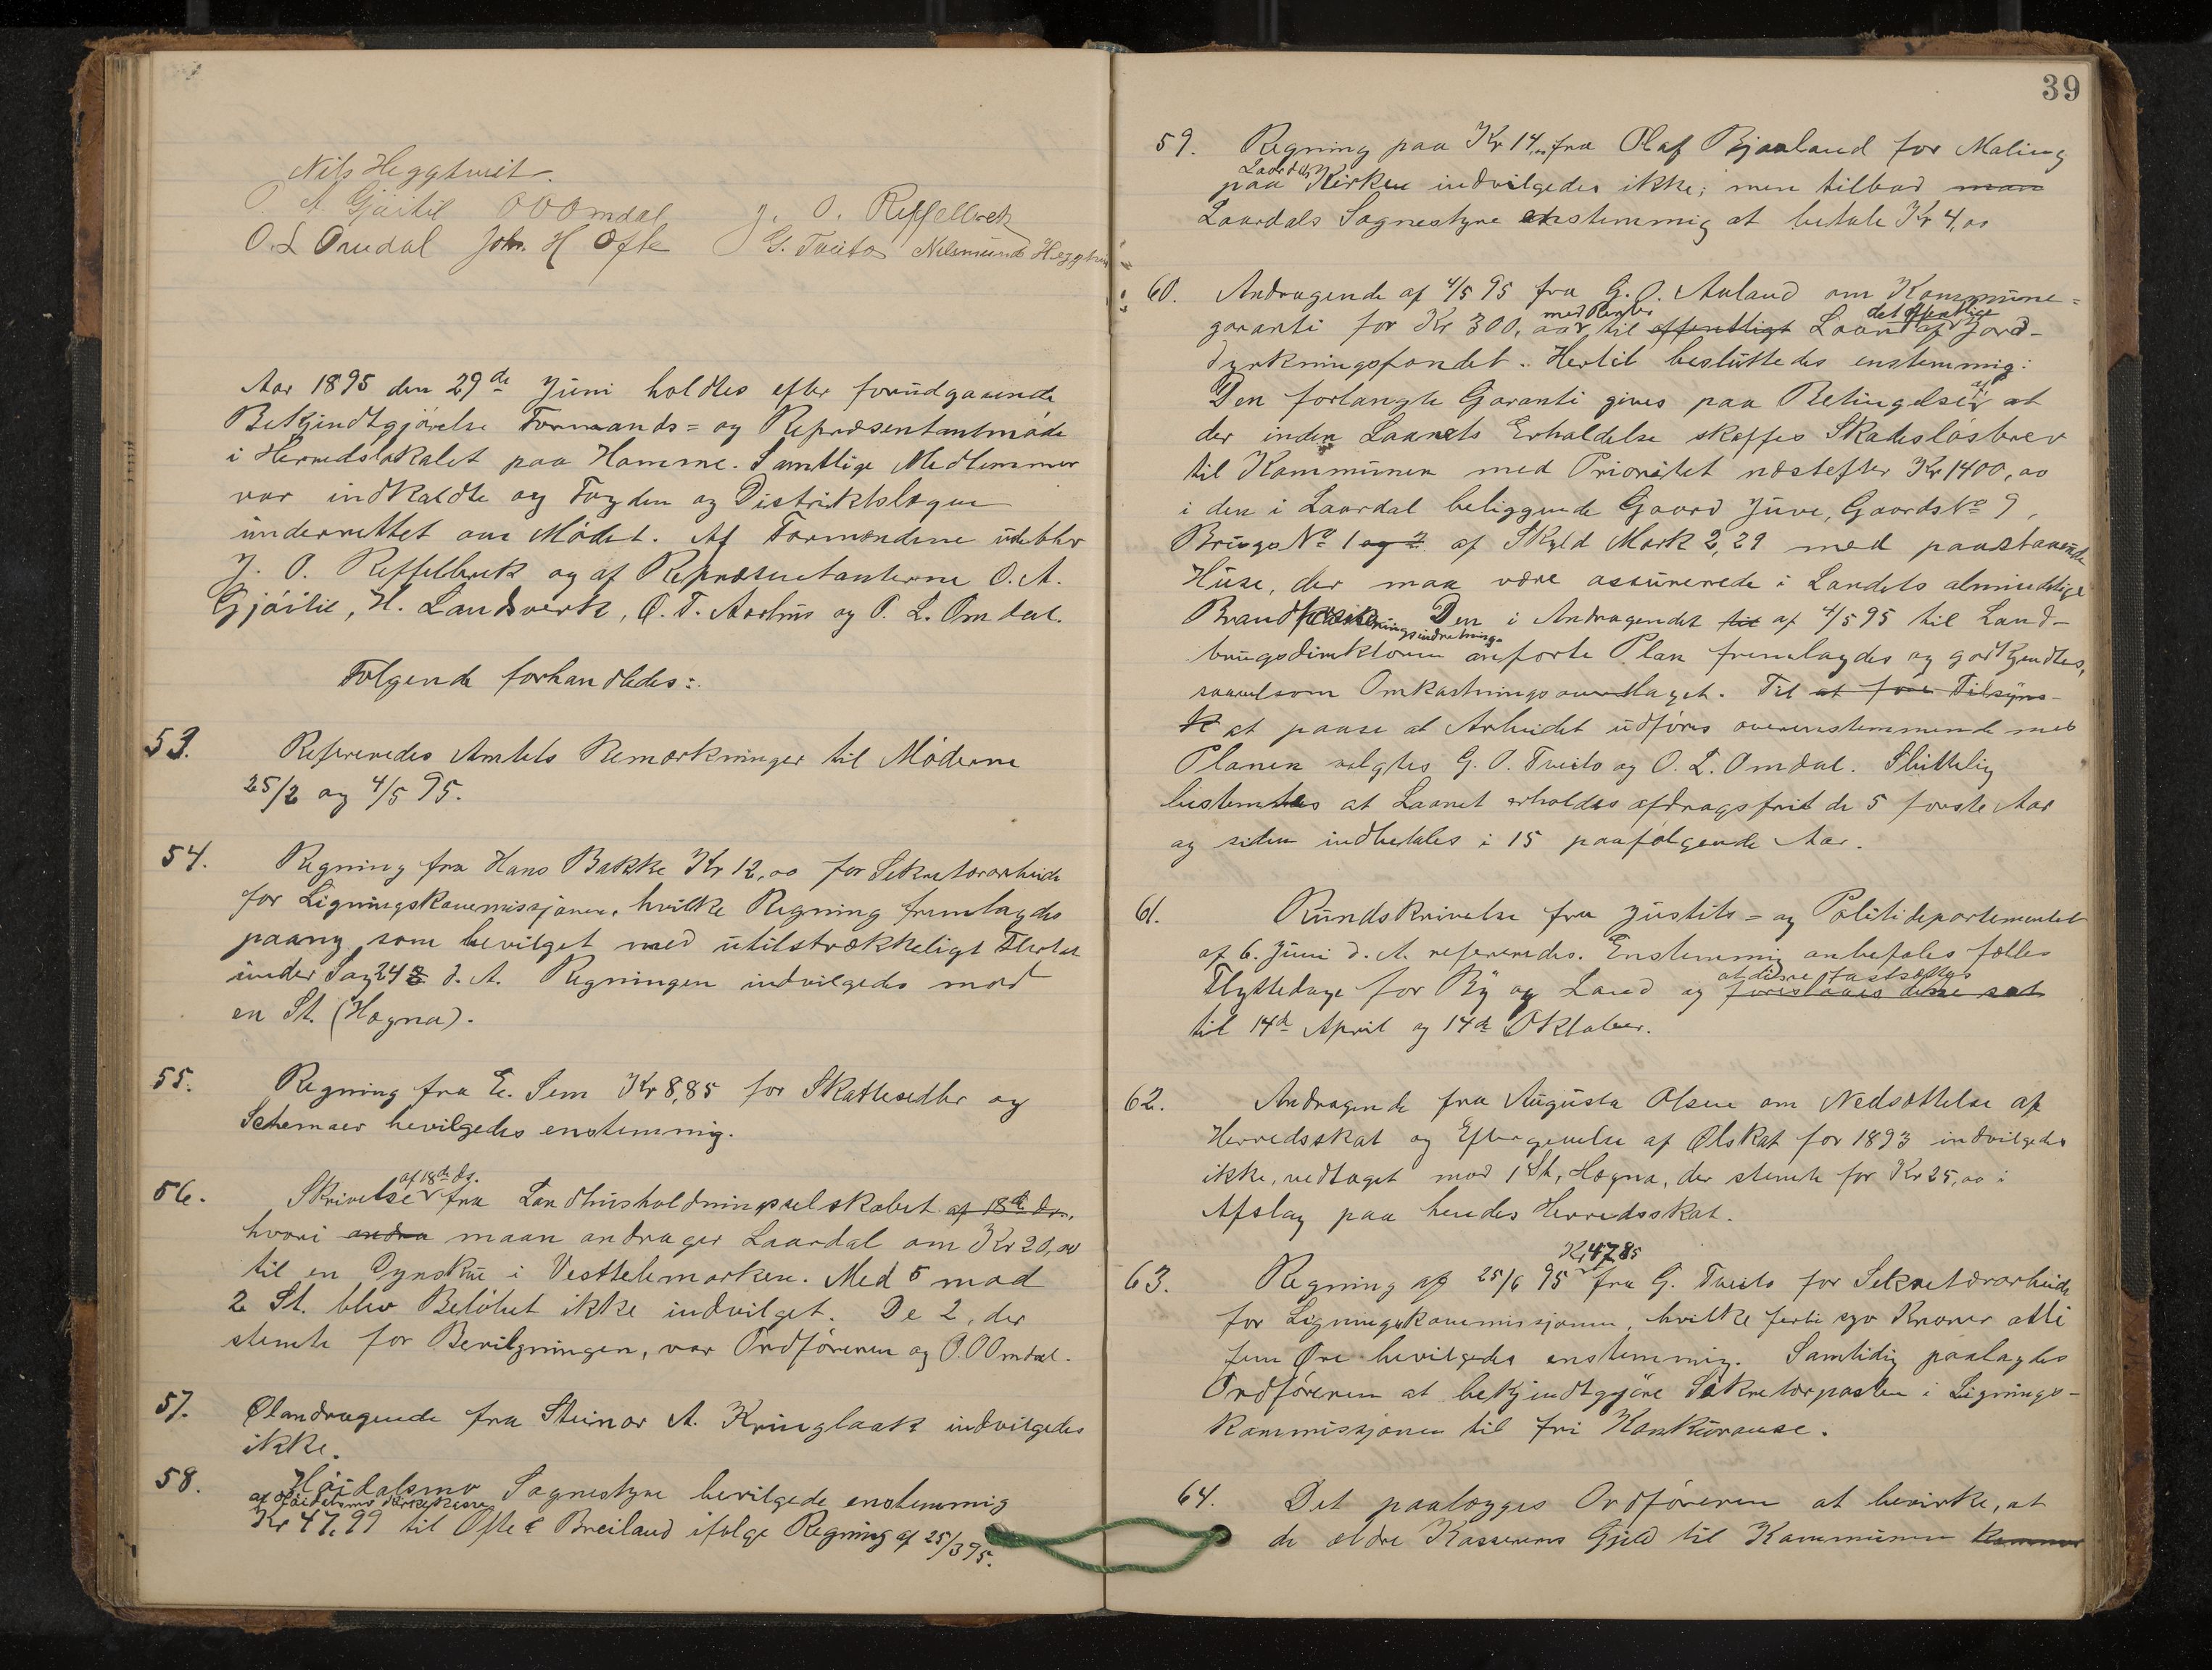 Nils Heggtveit.
O. A. Gjöitil OOOmdal J. O. Reffelbæk
O. L Omdal Joh. H Ofte G. Tveito Nilsmund Heggtveit
Aar 1895 den 29de Juni holdtes efter forudgaaende
Bekjendtgjörelse Formands= og Repræsentantmöde
i Herredslokalet paa Hamme. Samtlige Medlemmer
var indkaldte og Fogden og Distriktslægen
underrettet om Mödet. Af Formændene udeblev
J. O. Reffelbæk og af Repræsentanterne O. A.
Gjöitil, H. Landsverk, O. T. Aarhus og O. L. Omdal.
Fölgende forhandledes:
53. Refereredes Amtets Bemærkninger til Möderne
25/2 og 4/5 95.
54. Regning fra Hans Bakke Kr 12,00 for Sekretærarbeide
for Ligningskommissjonen, hvilke Regning fremlagdes
paany som bevilget med utilstrækkeligt Flertal
under Sag 24 d. A. Regningen indvilgedes mod
en St. (Høgna).
55. Regning fra E. Sem Kr 8,85 for Skattesedler og
Schemaer bevilgedes enstemmig.
af 18de ds.
56. Skrivelse fra Landhusholdningsselskabet af 18de ds.
hvori andra maan andrager Laardal om Kr 20,00
til en Dynsku i Vesttelemarken. Med 5 mod
2 St. blev Belöbet ikke indvilget. De 2, der
stemte for Bevilgningen, var Ordföreren og O.OOmdal.
57. Ølandragende fra Steinar A. Kringlaak indvilgedes
ikke.
58. Höidalsmo Sognestyre bevilgede enstemmig
af Höidalsmo Kirkekasse
Kr 47,99 til Ofte & Breiland ifölge Regning af 25/3 95.
39
59. Regning paa Kr 14,00 fra Olaf Bjaaland for Maling
Laardals
paa Kirken indvilgedes ikke; men tilbød man
Laardals Sognestyre enstemmig at betale Kr 4,00
60. Andragende af 4/5 95 fra G. O. Aaland om Kommune=
med Renter det offentlige
garanti for Kr 300,00 til offentligt Laan af Jord-
dyrkningsfondet. Hertil besluttedes enstemmig:
af
Den forlangte Garanti gives paa Betingelse at
der inden Laanets Erholdelse skaffes Skadeslösbrev
til Kommunen med Prioritet næstefter Kr 1400,00
i den i Laardal beliggende Gaard Juve, Gaards No 9,
Brugs No 1 og 2 af Skyld Mark 2,29 med paastaaende
Huse, der maa være assurerede i Landets almindelige
Brandforsikringsindretning. Den i Andragendet til af 4/5 95 til Land-
brugsdirektören anförte Plan fremlagdes og godkjendtes,
saavelsom Omkostningsoverslaget. Til at före Tilsyns-
k at paase at Arbeidet udföres overensstemmende med
Planen valgtes G. O. Tveito og O. L. Omdal. Sluttelig
bestemtes at Laanet erholdes afdragsfrit de 5 förste Aar
og siden indbetales i 15 paafölgende Aar.
61. Rundskrivelse fra Justits= og Politidepartementet
af 6. Juni d. A. refereredes. Enstemmig anbefales fælles
at disse fastsættes
Flyttedage for By og Land og foreslaaes disse sat
til 14de April og 14de Oktober.
62. Andragende fra Augusta Olsen om Nedsættelse af
Herredsskat og Eftergivelse af Ølskat for 1893 indvilgedes
ikke, vedtaget mod 1 St, Høgna, der stemte for Kr 25,00 i
Afslag paa hendes Herredsskat.
Kr 47,85
63. Regning af 25/6 95 fra G. Tveito for Sekretærarbeide
for Ligningskommissjonen, hvilke förti syv Kroner otti
fem Øre bevilgedes enstemmig. Samtidig paalagdes
Ordföreren at bekjendtgjöre Sekretærposten i Lignings-
kommissjonen til fri Konkurranse.
64. Det paalægges Ordföreren at bevirke, at
de ældre Kassereres Gjeld til Kommunen kommer